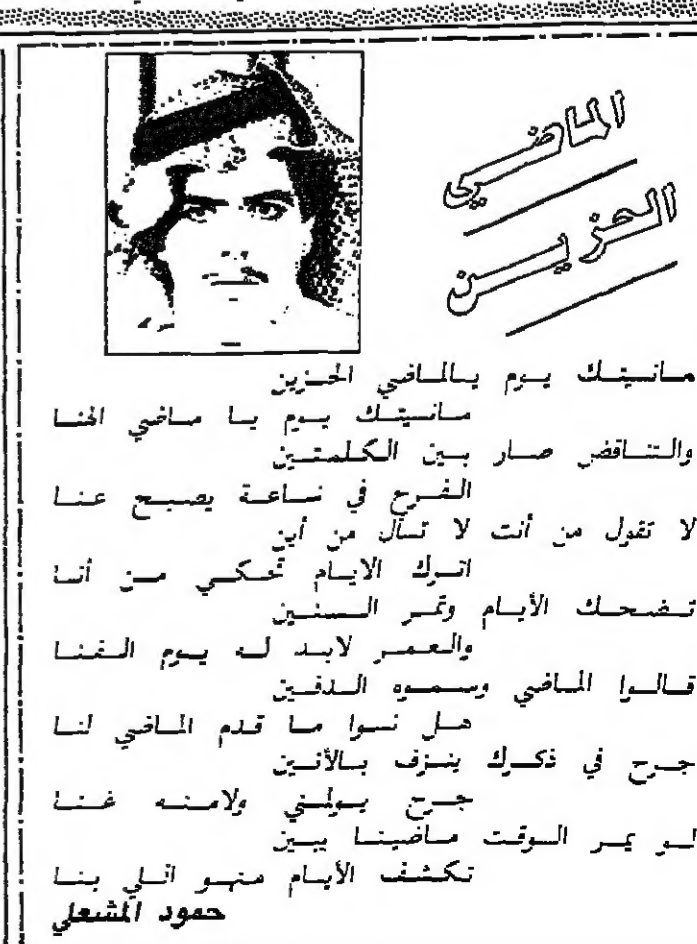 الماضي
الحزين
مانسيتك يوم يالماضي الحزين
مانسيتك يوم يا ماضي الهنا
والتناقض صار بين الكلمتين
الفرح في ساعة يصبح عنا
لا تقول من أنت لا تسأل من أين
اترك الايام تحكي من أنا
تضحك الأيام وتمر السنين
والعمر لابد له يوم الفنا
قالوا الماضي وسموه الدفين
هل نسوا ما قدم الماضي لنا
جرح في ذكرك ينزف بالأنين
جرح يولمني ولامنه غنا
لو يمر الوقت ماضينا يبين
تكشف الأيام منهو اللي بنا
حمود المشعلي